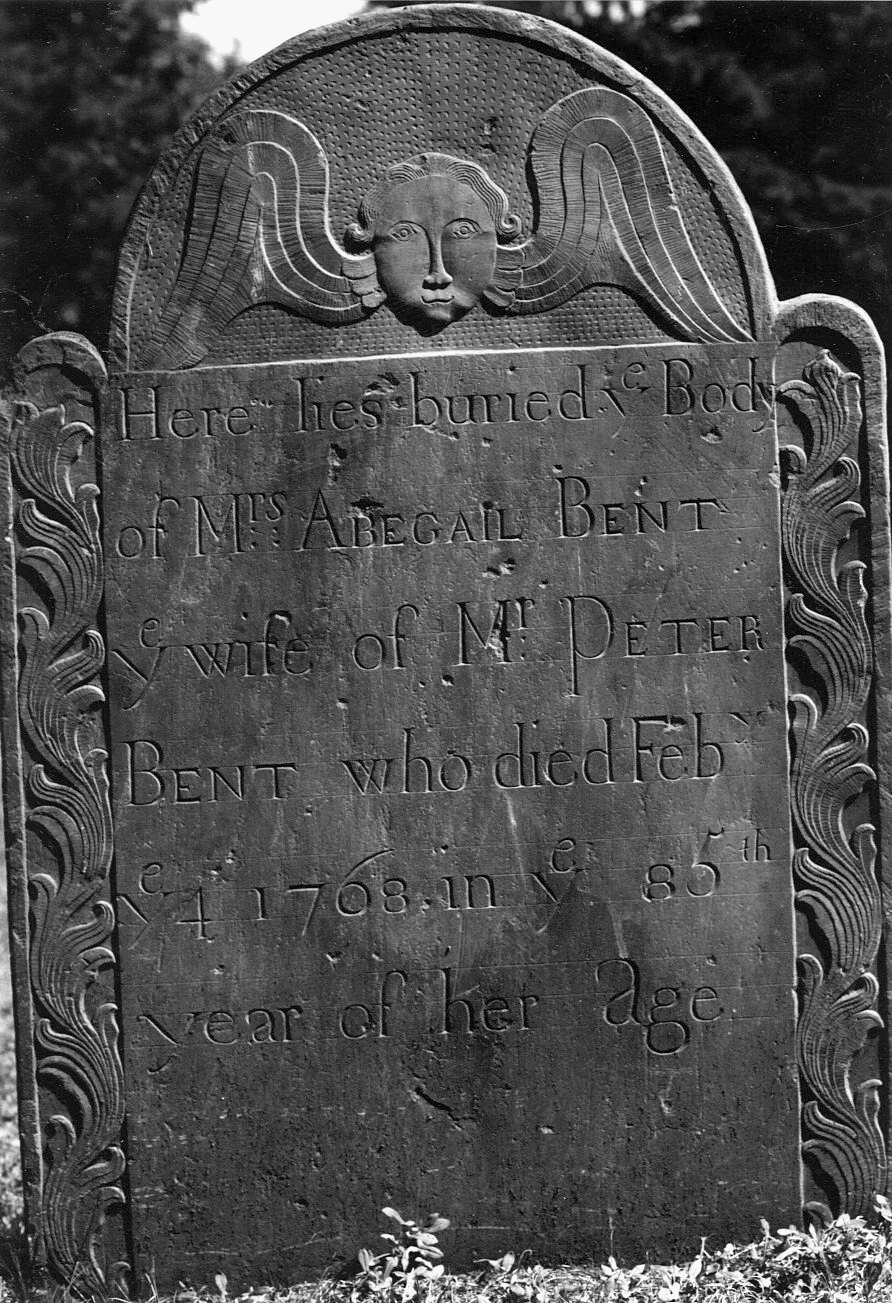 Here lies buried yᵉ Body
of Mʳˢ: ABEGAIL BENT
yᵉ wife of Mʳ: PETER
BENT who died Febʸ
yᵉ 4 1768 in yᵉ 85ᵗʰ
year of her age